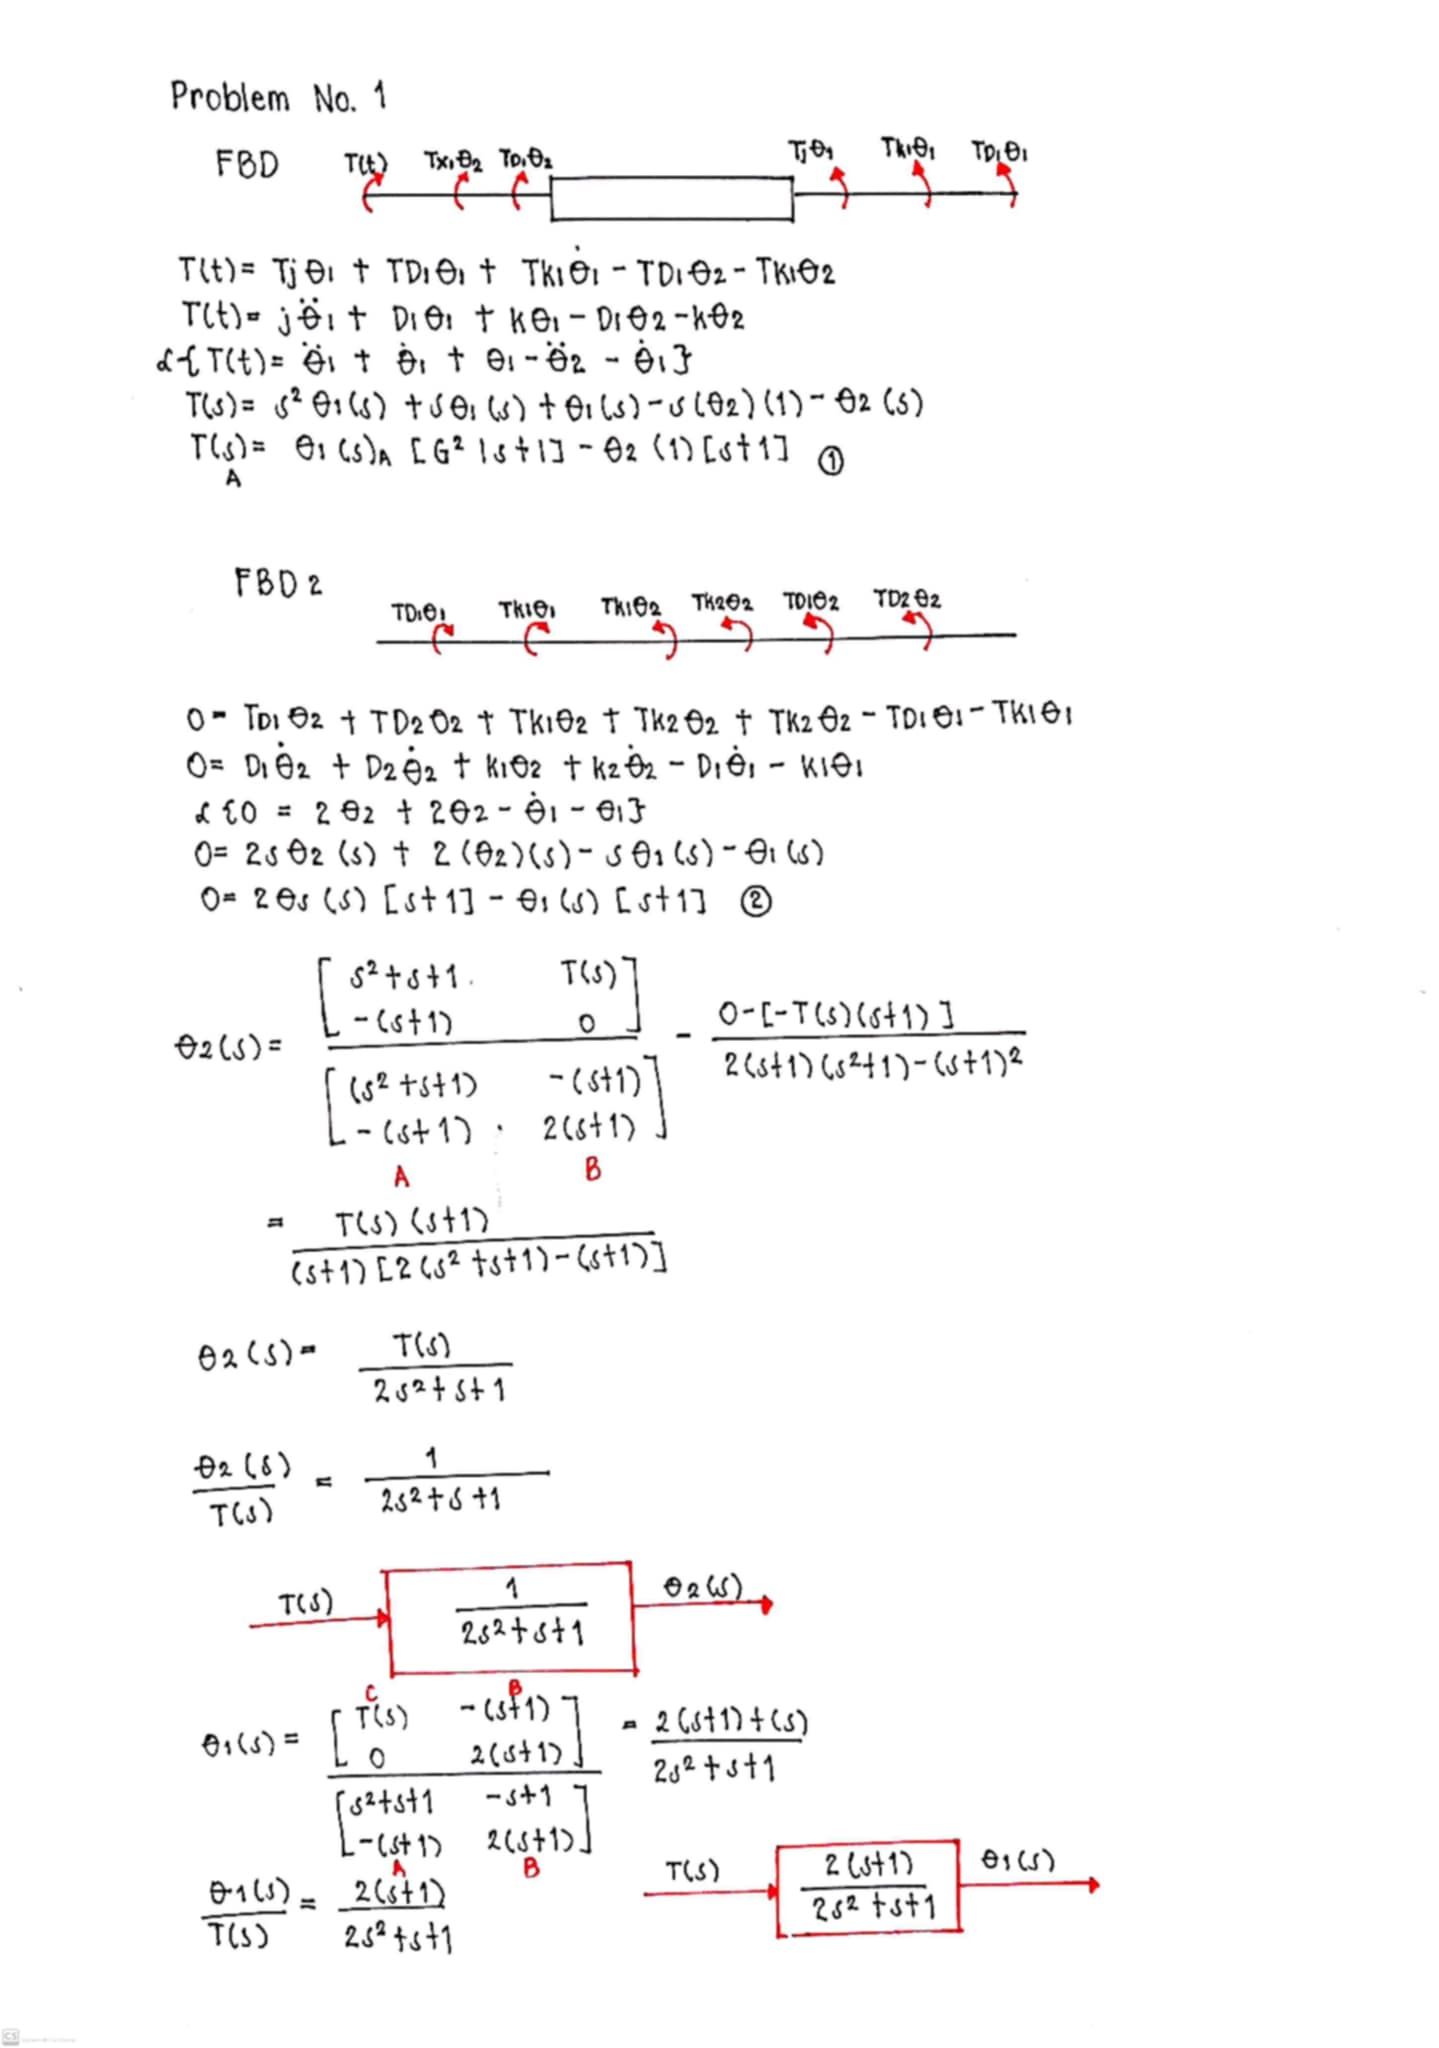 Problem No. 1
FBD
T(t) Tx₁θ2 TD₁θ2 Tjθ1 Tk1θ1 TD1θ1
T(t)= Tjθ1 + TD1θ1 + Tk1θ̇1 - TD1θ2 - TK1θ2
T(t)= jθ̈1 + D1θ1 + kθ1 - D1θ2 - kθ2
ℒ{T(t)= θ̈1 + θ̇1 + θ1 - θ̈2 - θ̇1}
T(s)= s² θ1(s) + sθ1(s) + θ1(s) - s(θ2)(1) - θ2(s)
T(s)= θ1(s)A [G² 1s+1] - θ2 (1)[s+1] ①
A
FBD 2
TD1θ1 Tk1θ1 Tk1θ2 Tk2θ2 TD1θ2 TD2θ2
0= TD1θ2 + TD2θ2 + TK1θ2 + TK2θ2 + TK2θ2 - TD1θ1 - TK1θ1
0= D1θ̇2 + D2θ̇2 + K1θ2 + k2θ̇2 - D1θ̇1 - K1θ1
ℒ{0 = 2θ2 + 2θ2 - θ̇1 - θ1}
0= 2sθ2(s) + 2(θ2)(s) - sθ1(s) - θ1(s)
0= 2θs(s) [s+1] - θ1(s) [s+1] ②
[ s²+s+1. T(s) ]
[ -(s+1) 0 ]
θ2(s)= - 0-[-T(s)(s+1)]
2(s+1)(s²+1)-(s+1)²
[ (s²+s+1) -(s+1) ]
[ -(s+1) . 2(s+1) ]
A B
= T(s)(s+1)
(s+1)[2(s²+s+1)-(s+1)]
θ2(s)= T(s)
2s²+s+1
θ2(s) = 1
T(s) 2s²+s+1
T(s) 1 θ2(s)
2s²+s+1
C B
θ1(s)= [ T(s) -(s+1) ] = 2(s+1)+(s)
[ 0 2(s+1) ] 2s²+s+1
[ s²+s+1 -s+1 ]
[ -(s+1) 2(s+1) ]
A B
θ1(s) = 2(s+1)
T(s) 2s²+s+1
T(s) 2(s+1) θ1(s)
2s²+s+1
CS